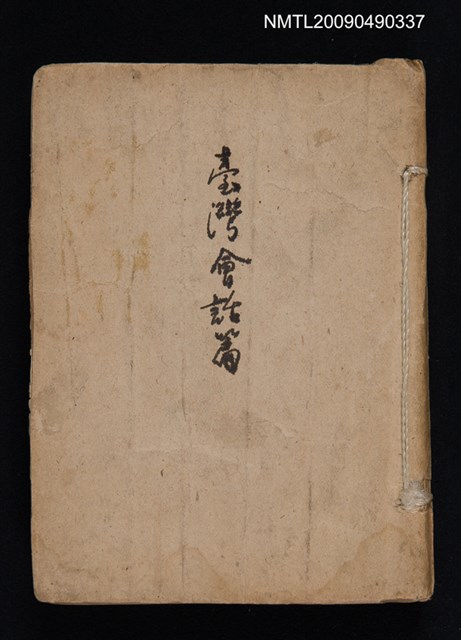 NMTL20090490337
臺灣會話篇